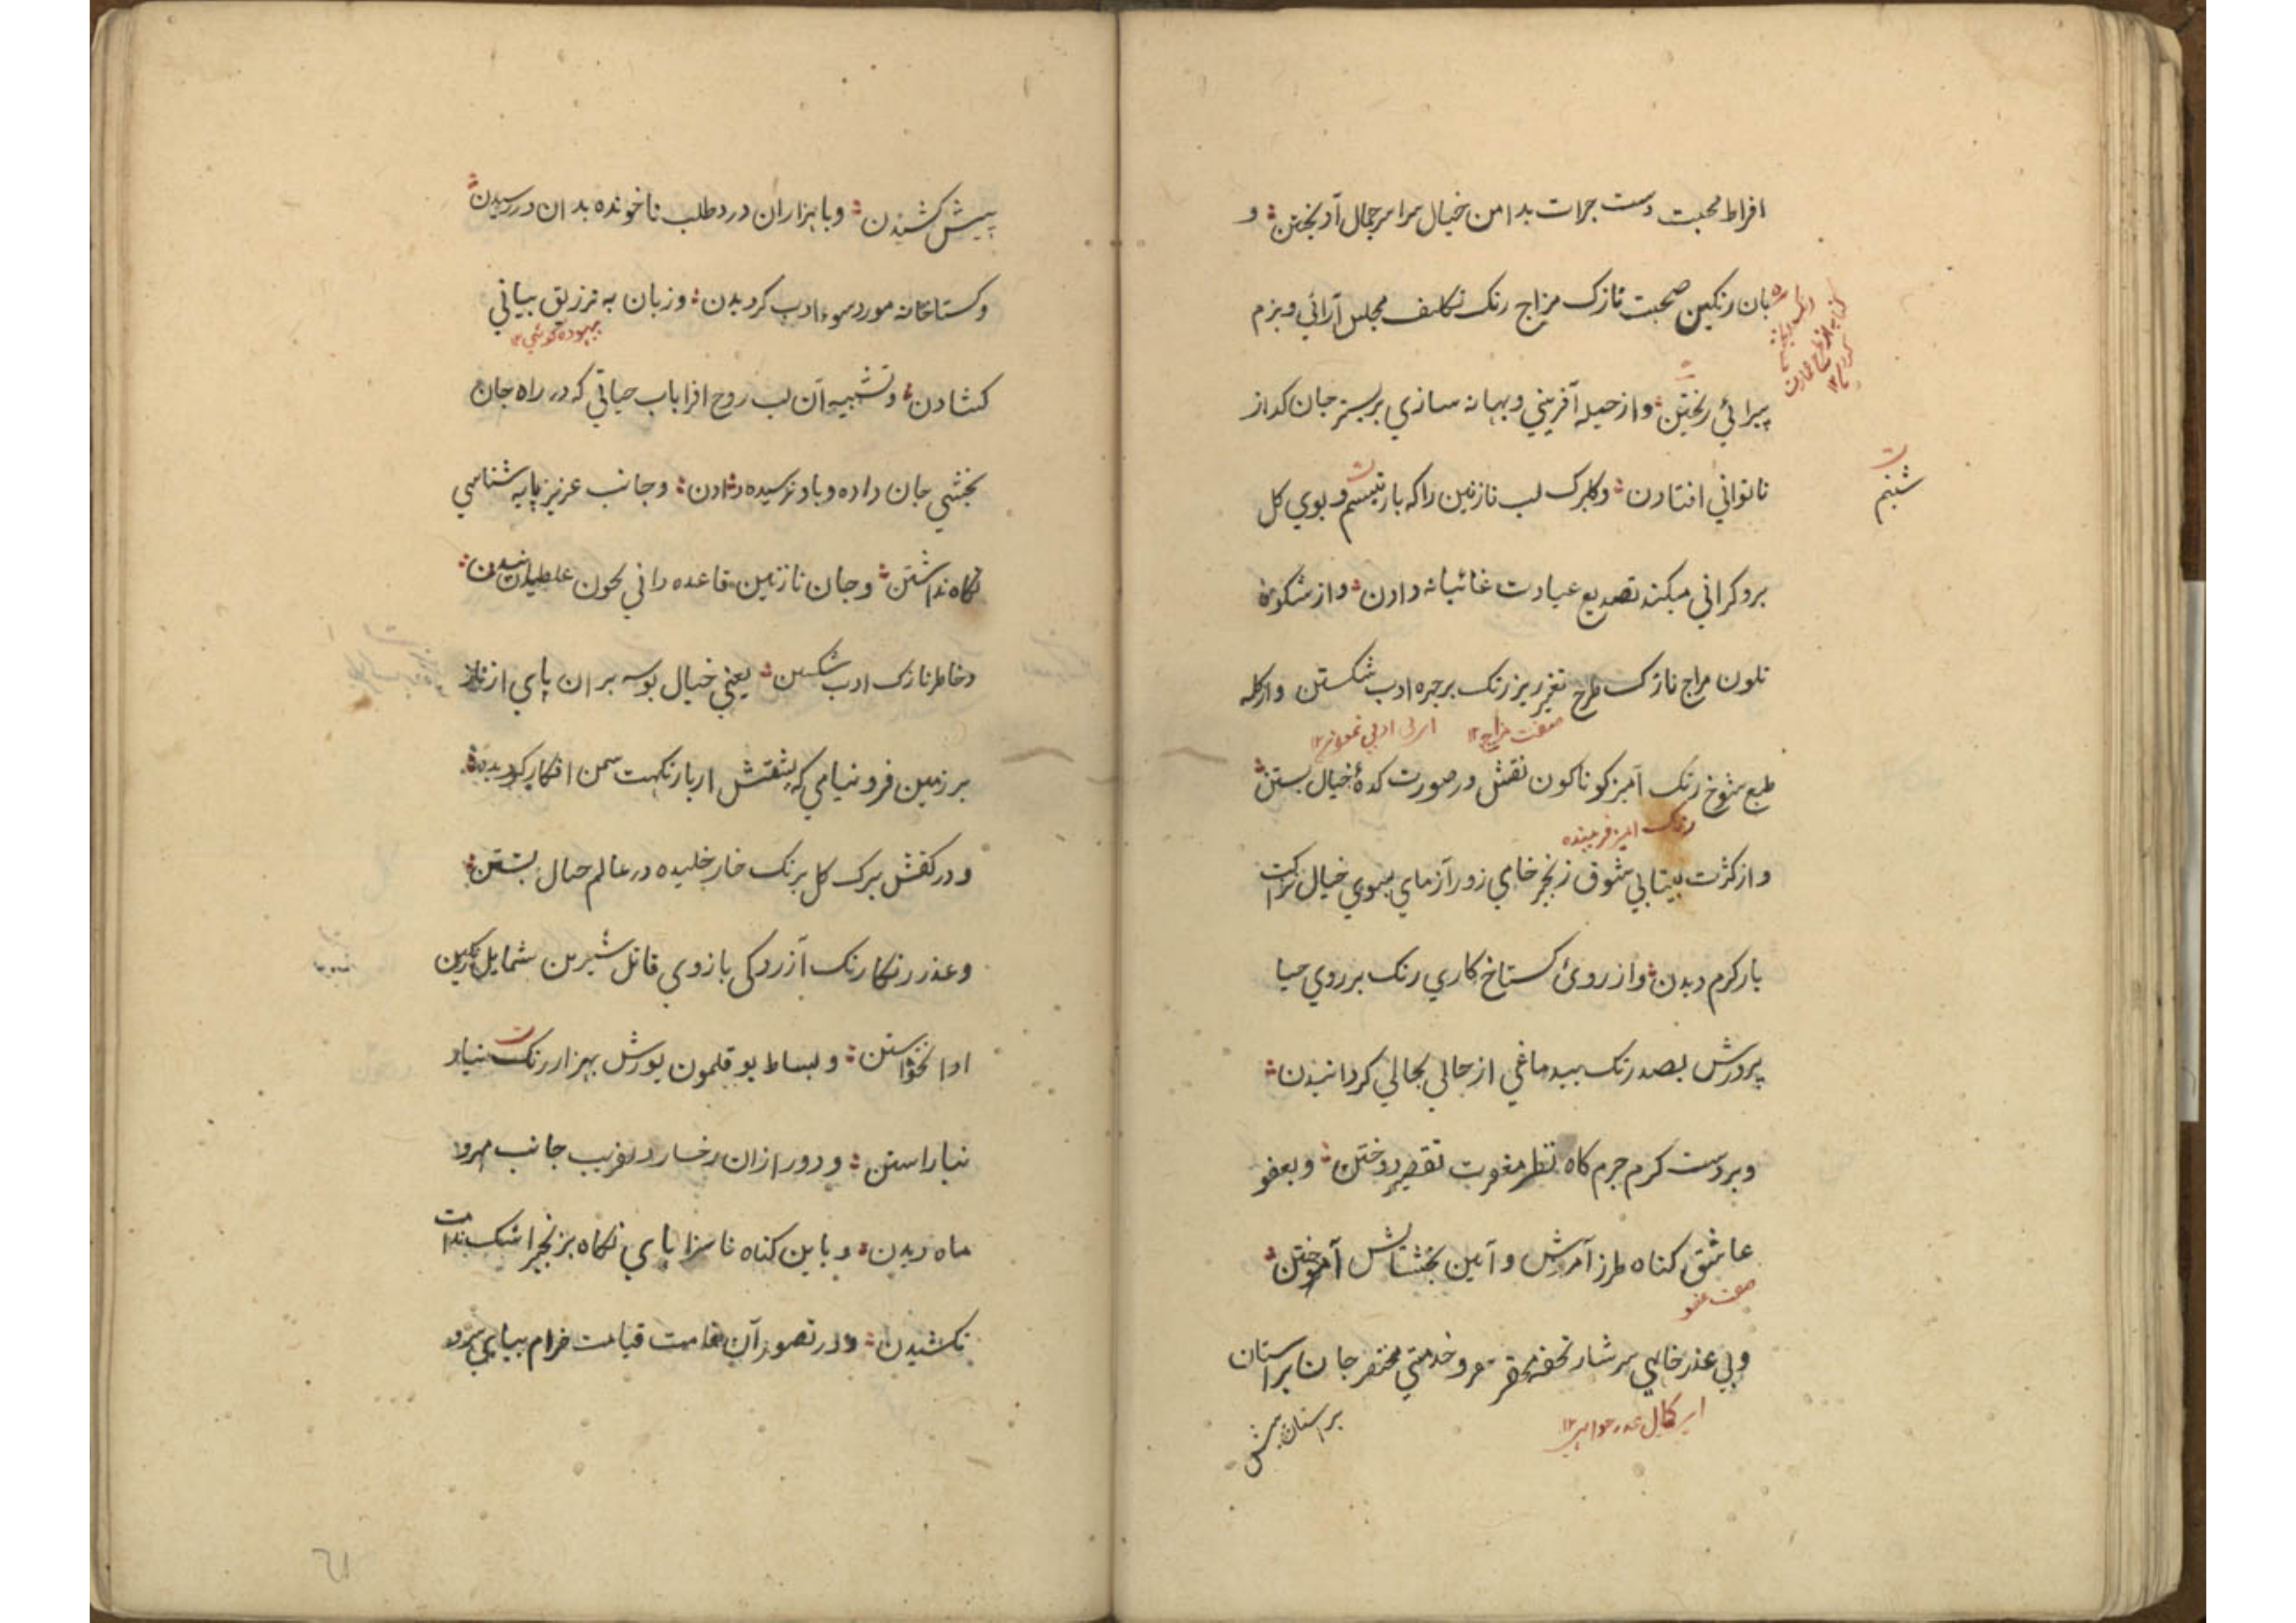 افراط محبت دست جرات بدامن خیال سراسر جمال آویختن و
بان رنکین صحبت نازک مزاج رنک تکلیف مجلس آرائی و بزم
پیرائی ریختن وازحیله آفرینی وبهانه سازی بر بستر جان کداز
شبنم
ناتوانی افتادن وکلبرک لب نازنین راکه بار تبسم و بوی کل
بروکرانی میکند تصدیع عیادت غائبانه دادن واز شکوه
تلون مزاج نازک طرح تغیر ریز رنک برچره ادب شکستن وازکله
صفت مزاج ۱۲
طبع شوخ رنک آمیز کوناکون نقش در صورت کدهٔ خیال بستن
رنک امیز فریبنده
وازکثرت بیتابی شوق زنجیر خای زورآزمای بسوی خیال نزاکت
بار کرم دیدن واز روی کستاخ کاری رنک بر روی حیا
پرورش بصد رنک بیدماغی از حالی بحالی کردانیدن
وبر دست کرم جرم کاه نظر مغفرت تقصیر دوختن وبعفو
عاشق کناه طرز آمرزش و آیین بخشایش آموختن
صفت عفو
وبی عذرخاهی سرشار تحفه محقر سر و خدمتی مختصر جان بر استان
بر استان پیش
پیش کشیدن وبا هزاران درد طلب ناخوانده بدان در رسیدن
وکستاخانه مورد سوء ادب کردیدن وزبان به ترزیق بیانی
بیهوده کوئی ۱۲
کشادن وتشبیه آن لب روح افزا باب حیاتی که در راه جان
بخشی جان داده و باو نرسیده دادن وجانب عزیز پایه شناسی
نکاه نداشتن وجان نازنین قاعده دانی بخون غلطانیدن
وخاطر نازک ادب شکستن یعنی خیال بوسه بر ان پای از ناز
بر زمین فرو نیامی که پشتش ازبار نکهت سمن افکار کردیده
ودر کفش برک کل برنک خار خلیده در عالم خیال بستن
وعذر رنکارنک آزردکی بازوی قاتل شیرین شمایل رنکین
ادا نخواستن وبساط بوقلمون پوزش بهزار رنک نیاز
نیاراستن ودور ازان رخسار دلفریب جانب مهرو
ماه دیدن وباین کناه ناسزا پای نکاه بزنجیر اشک ندامت
نکشیدن ودر تصور آن قامت قیامت خرام بیای سرو